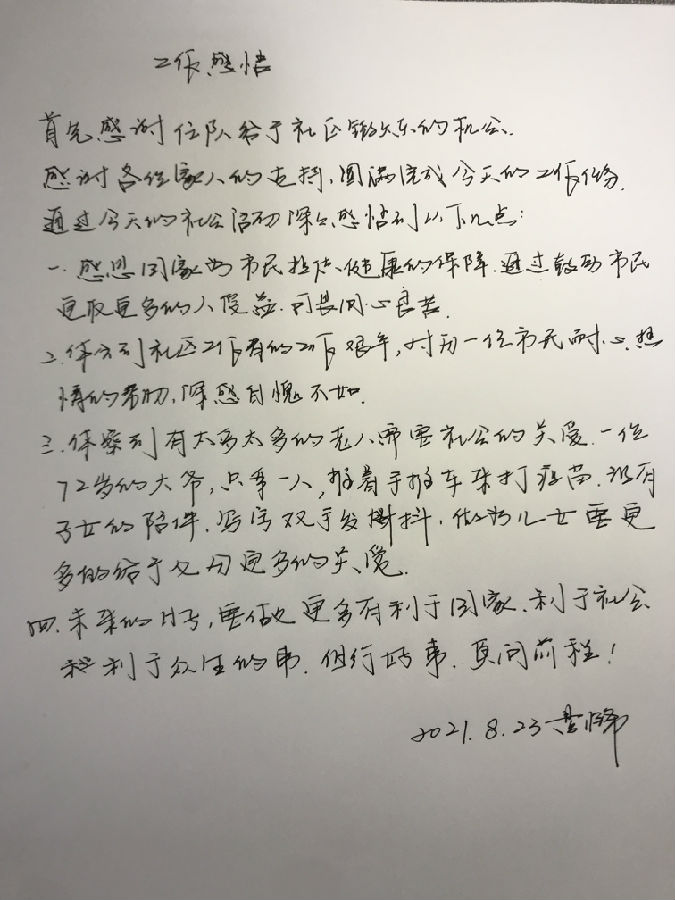 工作感悟
首先感谢位队给于社区锻炼的机会.
感谢各位家人的支持,圆满完成今天的工作任务.
通过今天的社会活动深深感悟到以下几点:
一.感恩国家为市民提供健康的保障.通过鼓励市民
更多的人 用心良苦.
二.体会到社区工作者的工作艰辛,对每一位市民耐心.热
情的帮助,深感自愧不如.
三.体察到有太多太多的老人需要社会的关爱.一位
72岁的大爷,只身一人,推着手推车来打疫苗.没有
子女的陪伴.写字双手发抖.做为儿女要更
多的给于父母更多的关爱.
四.未来的日子,要做更多有利于国家.利于社会
利于众生的事.但行好事.莫问前程!
2021.8.23